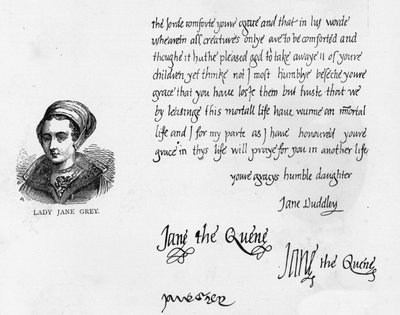 the lorde comforte youre grace and that in his worde
whearein all creatures onlye are to be comforted and
thoughe it hathe pleased god to take awaye ii of youre
children yet thinke not I most humblye beseche youre
grace that you haue loste them but truste that we
by leasinge this mortall life haue wunne an imortal
life and I for my parte as I haue honoured youre
grace in thys life wil praye for you in another life
youre gracys humble daughter
Jane Duddley
LADY JANE GREY.
Jane the Quene
Jane the Quene